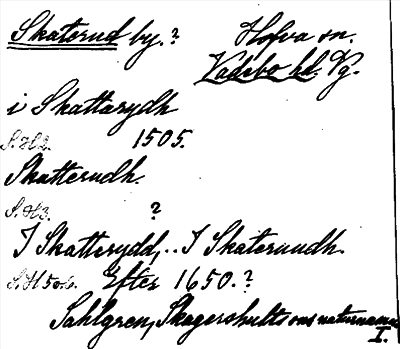 Skaterud by.? Hofva sn.
Vadsbo hd. Vg.
i Skattarydh
1505.
Skatterudh.
S. H3. ?
I Skatterydd,.. I Skateruudh.
Efter 1650.?
Sahlgren, Skagershults ons naturnamn
I.